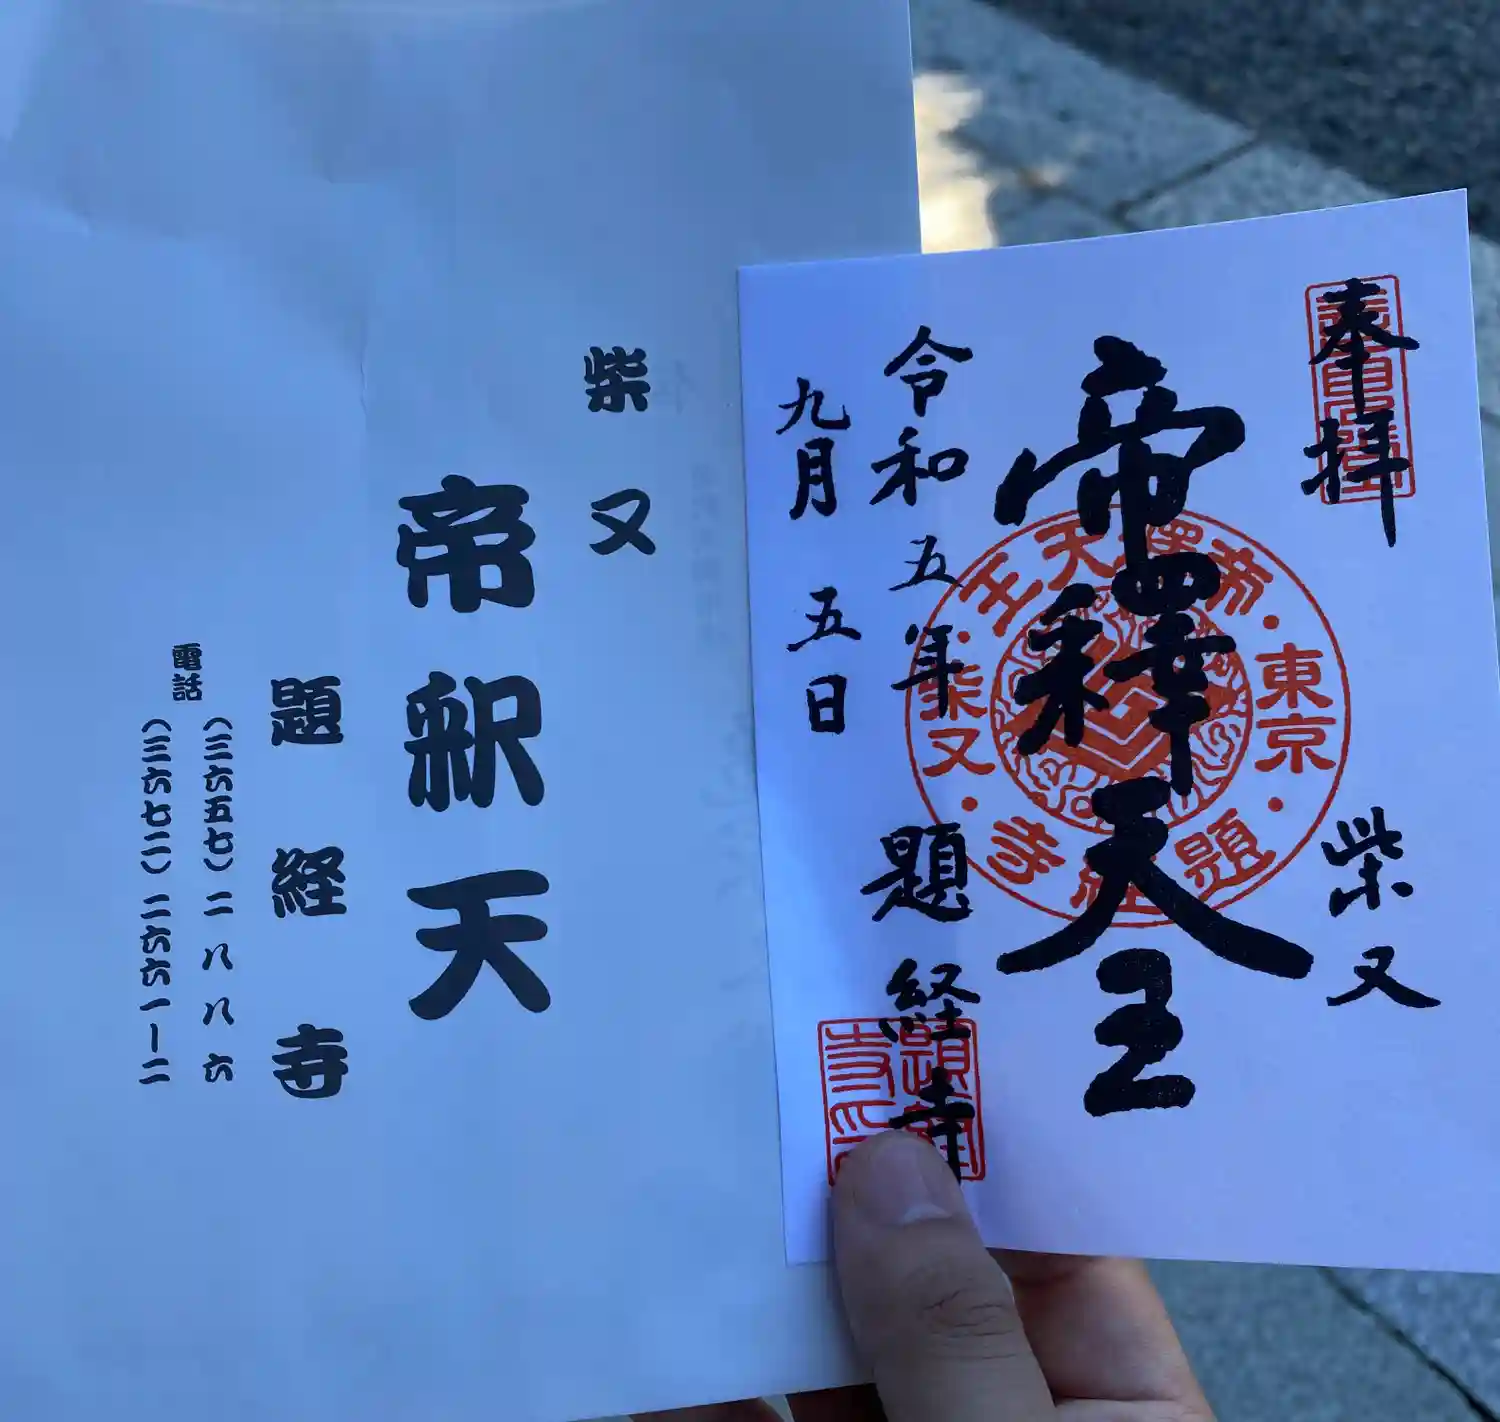 柴又
帝釈天
題経寺
電話
(三六五七)二八八六
(三六七二)二六六一ー二
奉拝
柴又
帝釋天王
令和五年
九月五日
題経寺
東京
柴又
帝釋天王
題経寺